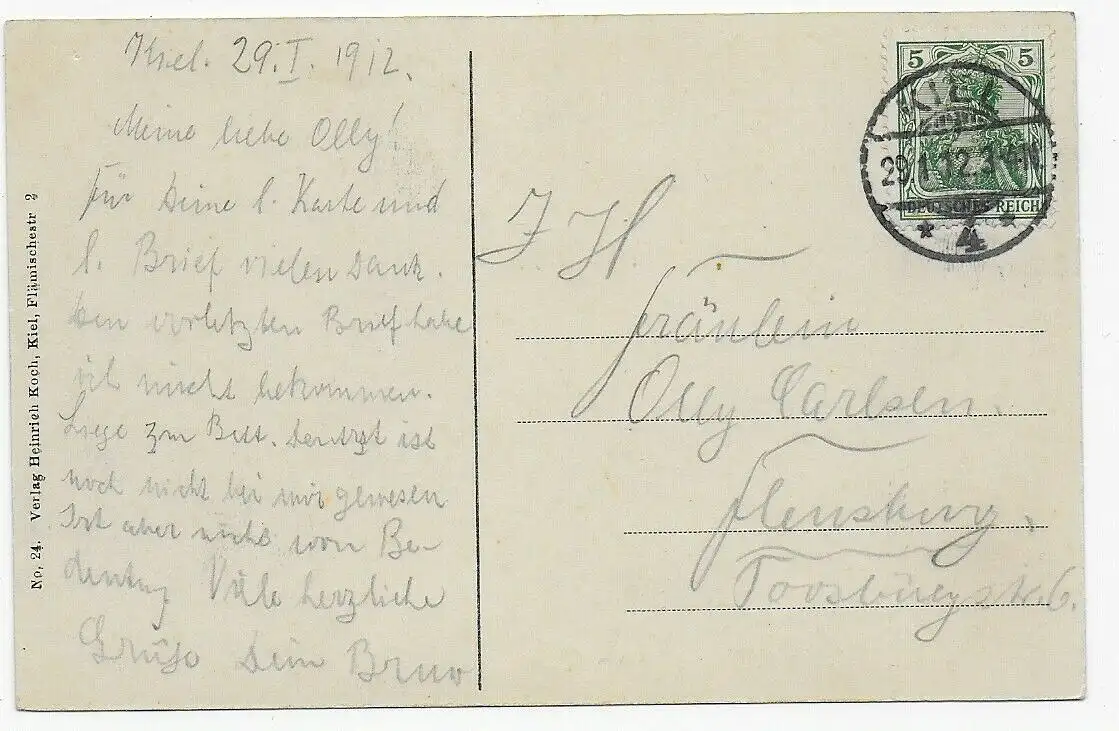 Kiel. 29.I.1912.
Meine liebe Olly!
Für Deine l. Karte und
l. Brief vielen Dank.
Den vorletzten Brief habe
ich nicht bekommen.
Liege zu Bett. Der Arzt ist
noch nicht bei mir gewesen
Ist aber nichts von Be-
deutung Viele herzliche
Grüße Dein Bruno
No. 24. Verlag Heinrich Koch, Kiel, Flämischestr 2
5 5
DEUTSCHES REICH
KIEL
29.1.12.3
* 4 *
Fräulein
Olly Carlsen.
Flensburg.
Toosbüystr. 6.